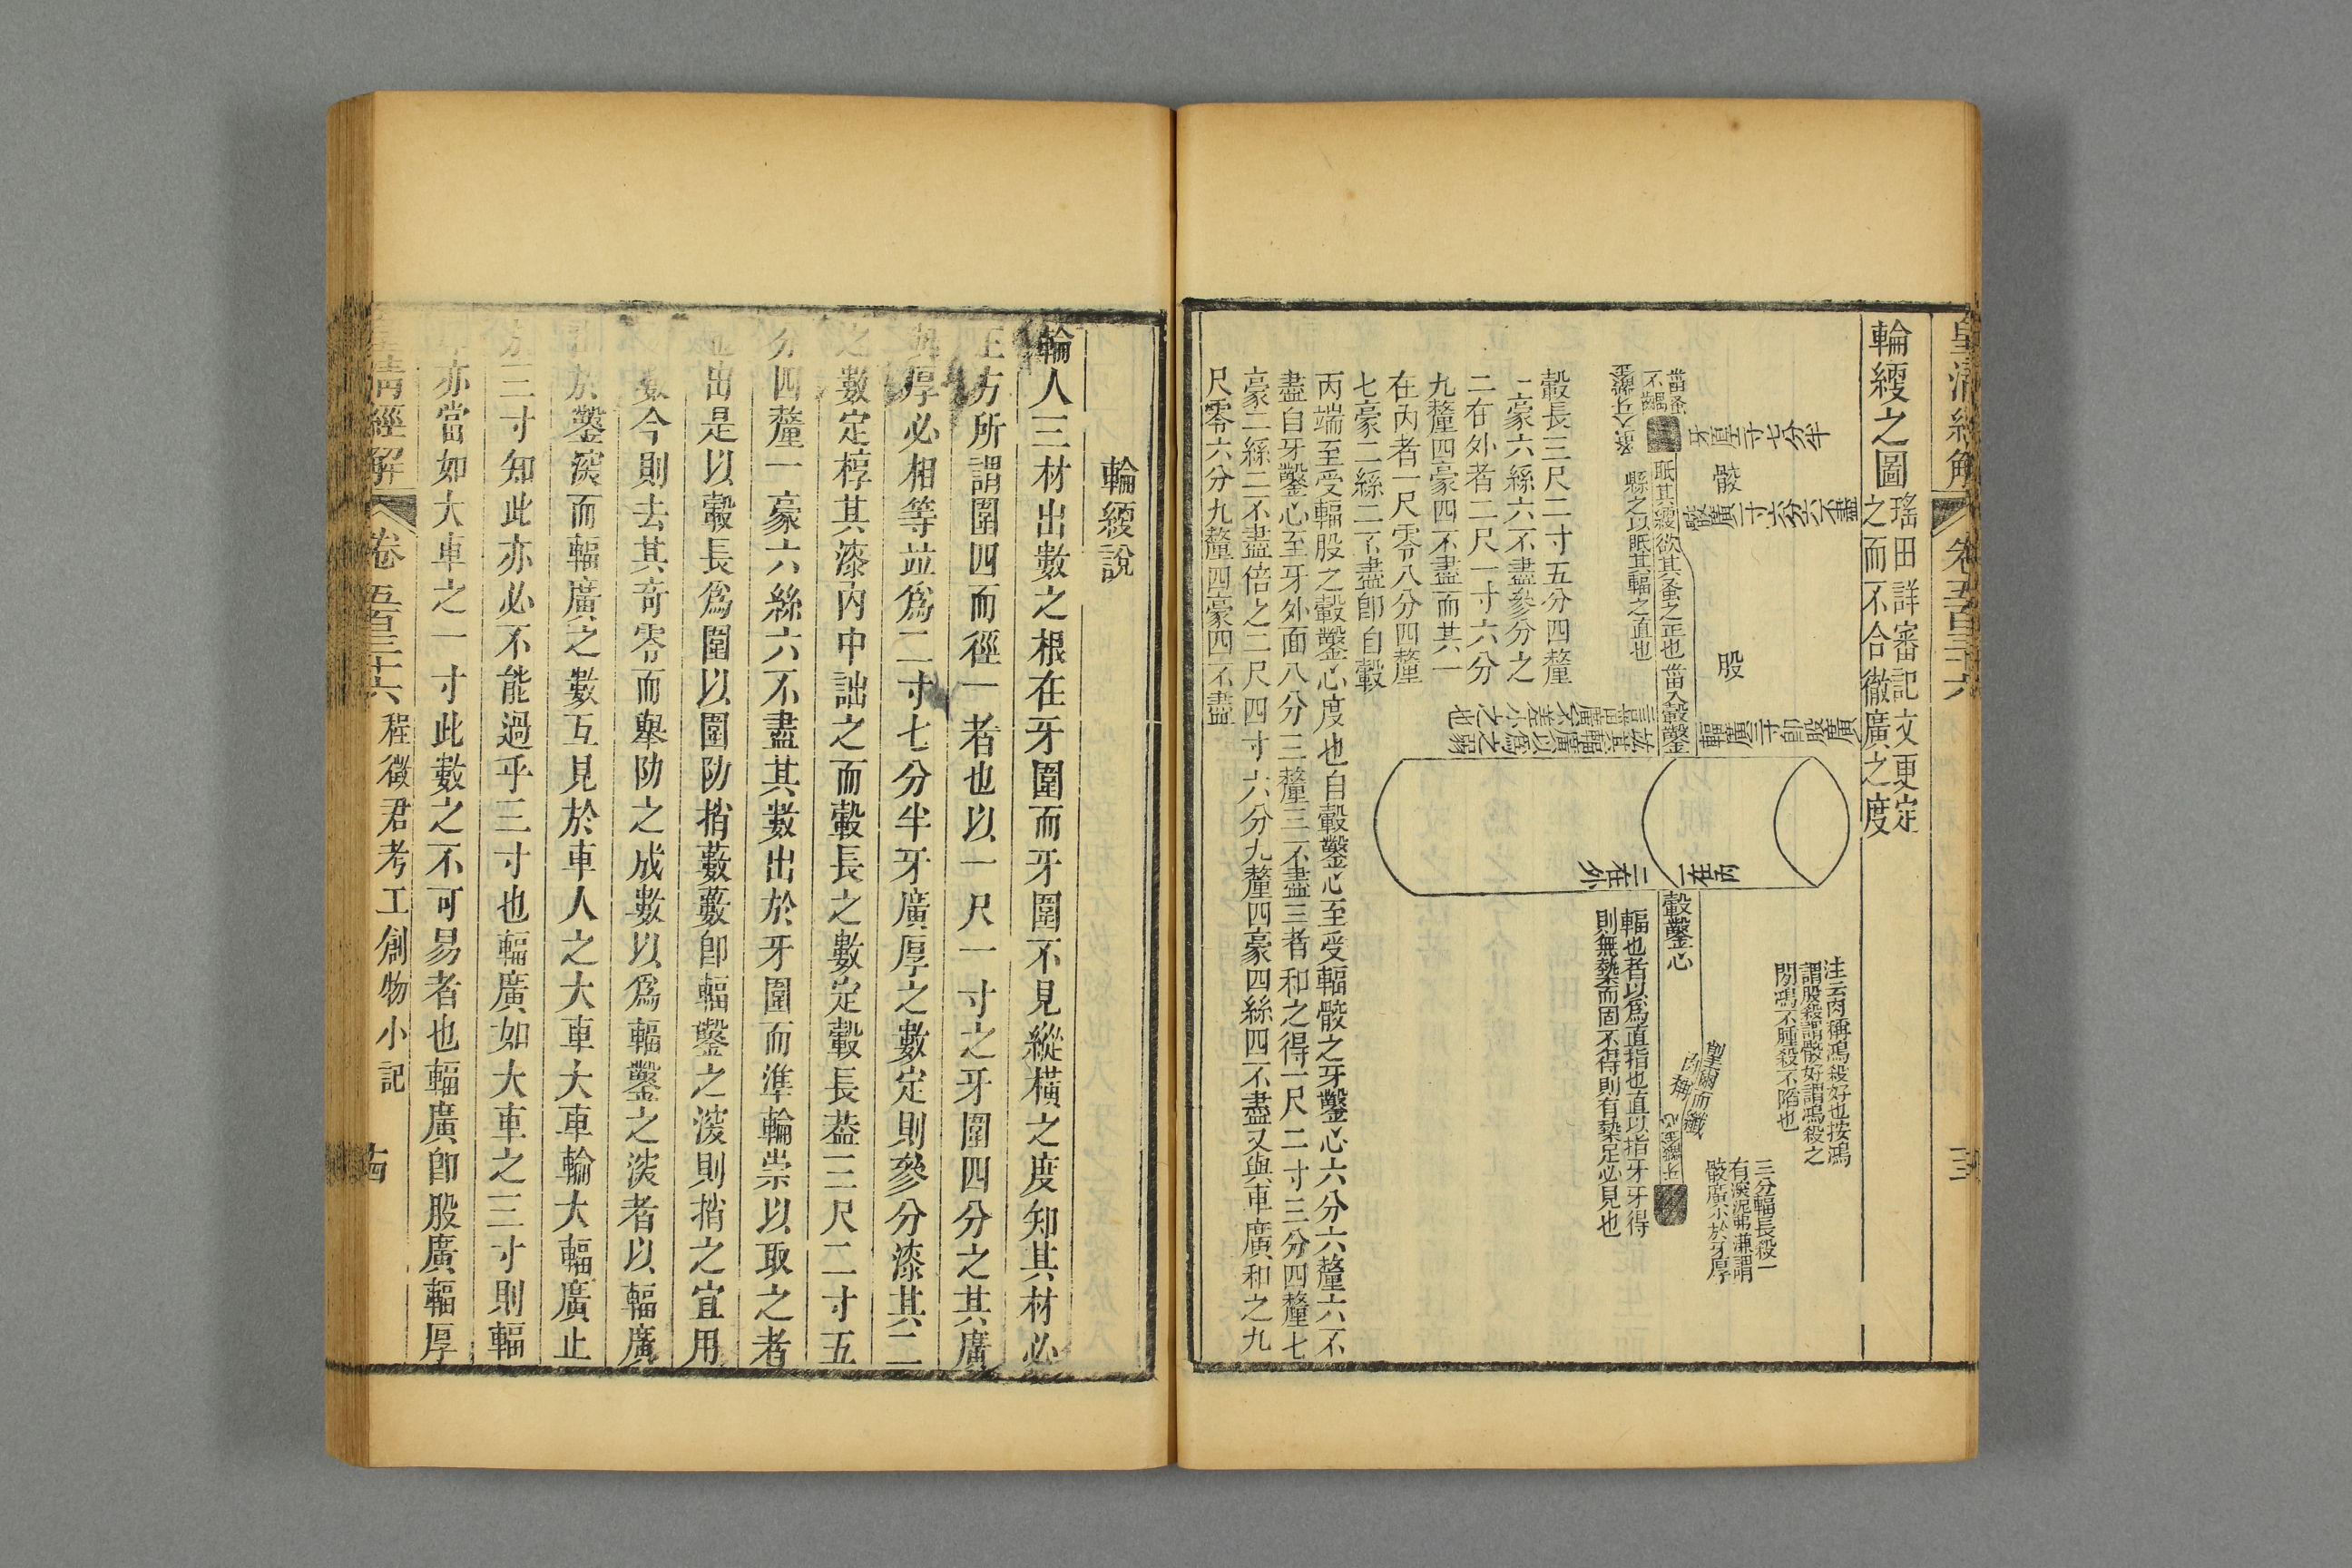 輪綆之圖
瑤田詳審記文更定
之而不合徹廣之度
牙直二寸七分半
骹
股
蚤入牙鑿
菑蚤
不齵
眂其綆欲其蚤之正也
縣之以眂其輻之直也
菑入轂鑿
一在內
二在外
轂鑿心
輻也者以爲直指也直以指牙牙得
則無槷而固不得則有槷足必見也
注云肉稱鴻殺好也按鴻
謂股殺謂骹好謂鴻殺之
閒鴻不腫殺不陷也
望而眂其輪
三分輻長殺一
有深泥弗溓謂
骹廣小於牙厚
轂長三尺二寸五分四釐
一豪六絲六不盡參分之
二在外者二尺一寸六分
九釐四豪四不盡而其一
在內者一尺零八分四釐
七豪二絲二不盡卽自轂
內端至受輻股之轂鑿心度也自轂鑿心至受輻骹之牙鑿心六分六釐六不
盡自牙鑿心至牙外面八分三釐三不盡三者和之得一尺二寸三分四釐七
豪二絲二不盡倍之二尺四寸六分九釐四豪四絲四不盡又與車廣和之九
尺零六分九釐四豪四不盡
輪綆說
輪人三材出數之根在牙圍而牙圍不見縱橫之度知其材必
正方所謂圍四而徑一者也以一尺一寸之牙圍四分之其廣
與厚必相等竝爲二寸七分半牙廣厚之數定則參分漆其二
之數定椁其漆內中詘之而轂長之數定轂長葢三尺二寸五
分四釐一豪六絲六不盡其數出於牙圍而準輪崇以取之者
也出是以轂長爲圍以圍阞捎藪藪卽輻鑿之深則捎之宜用
數今則去其奇零而舉阞之成數以爲輻鑿之深者以輻廣
於鑿深而輻廣之數互見於車人之大車大車輪大輻廣止
於三寸知此亦必不能過乎三寸也輻廣如大車之三寸則輻
亦當如大車之一寸此數之不可易者也輻廣卽股廣輻厚
皇清經解 卷五百三十六 程徵君考工創物小記